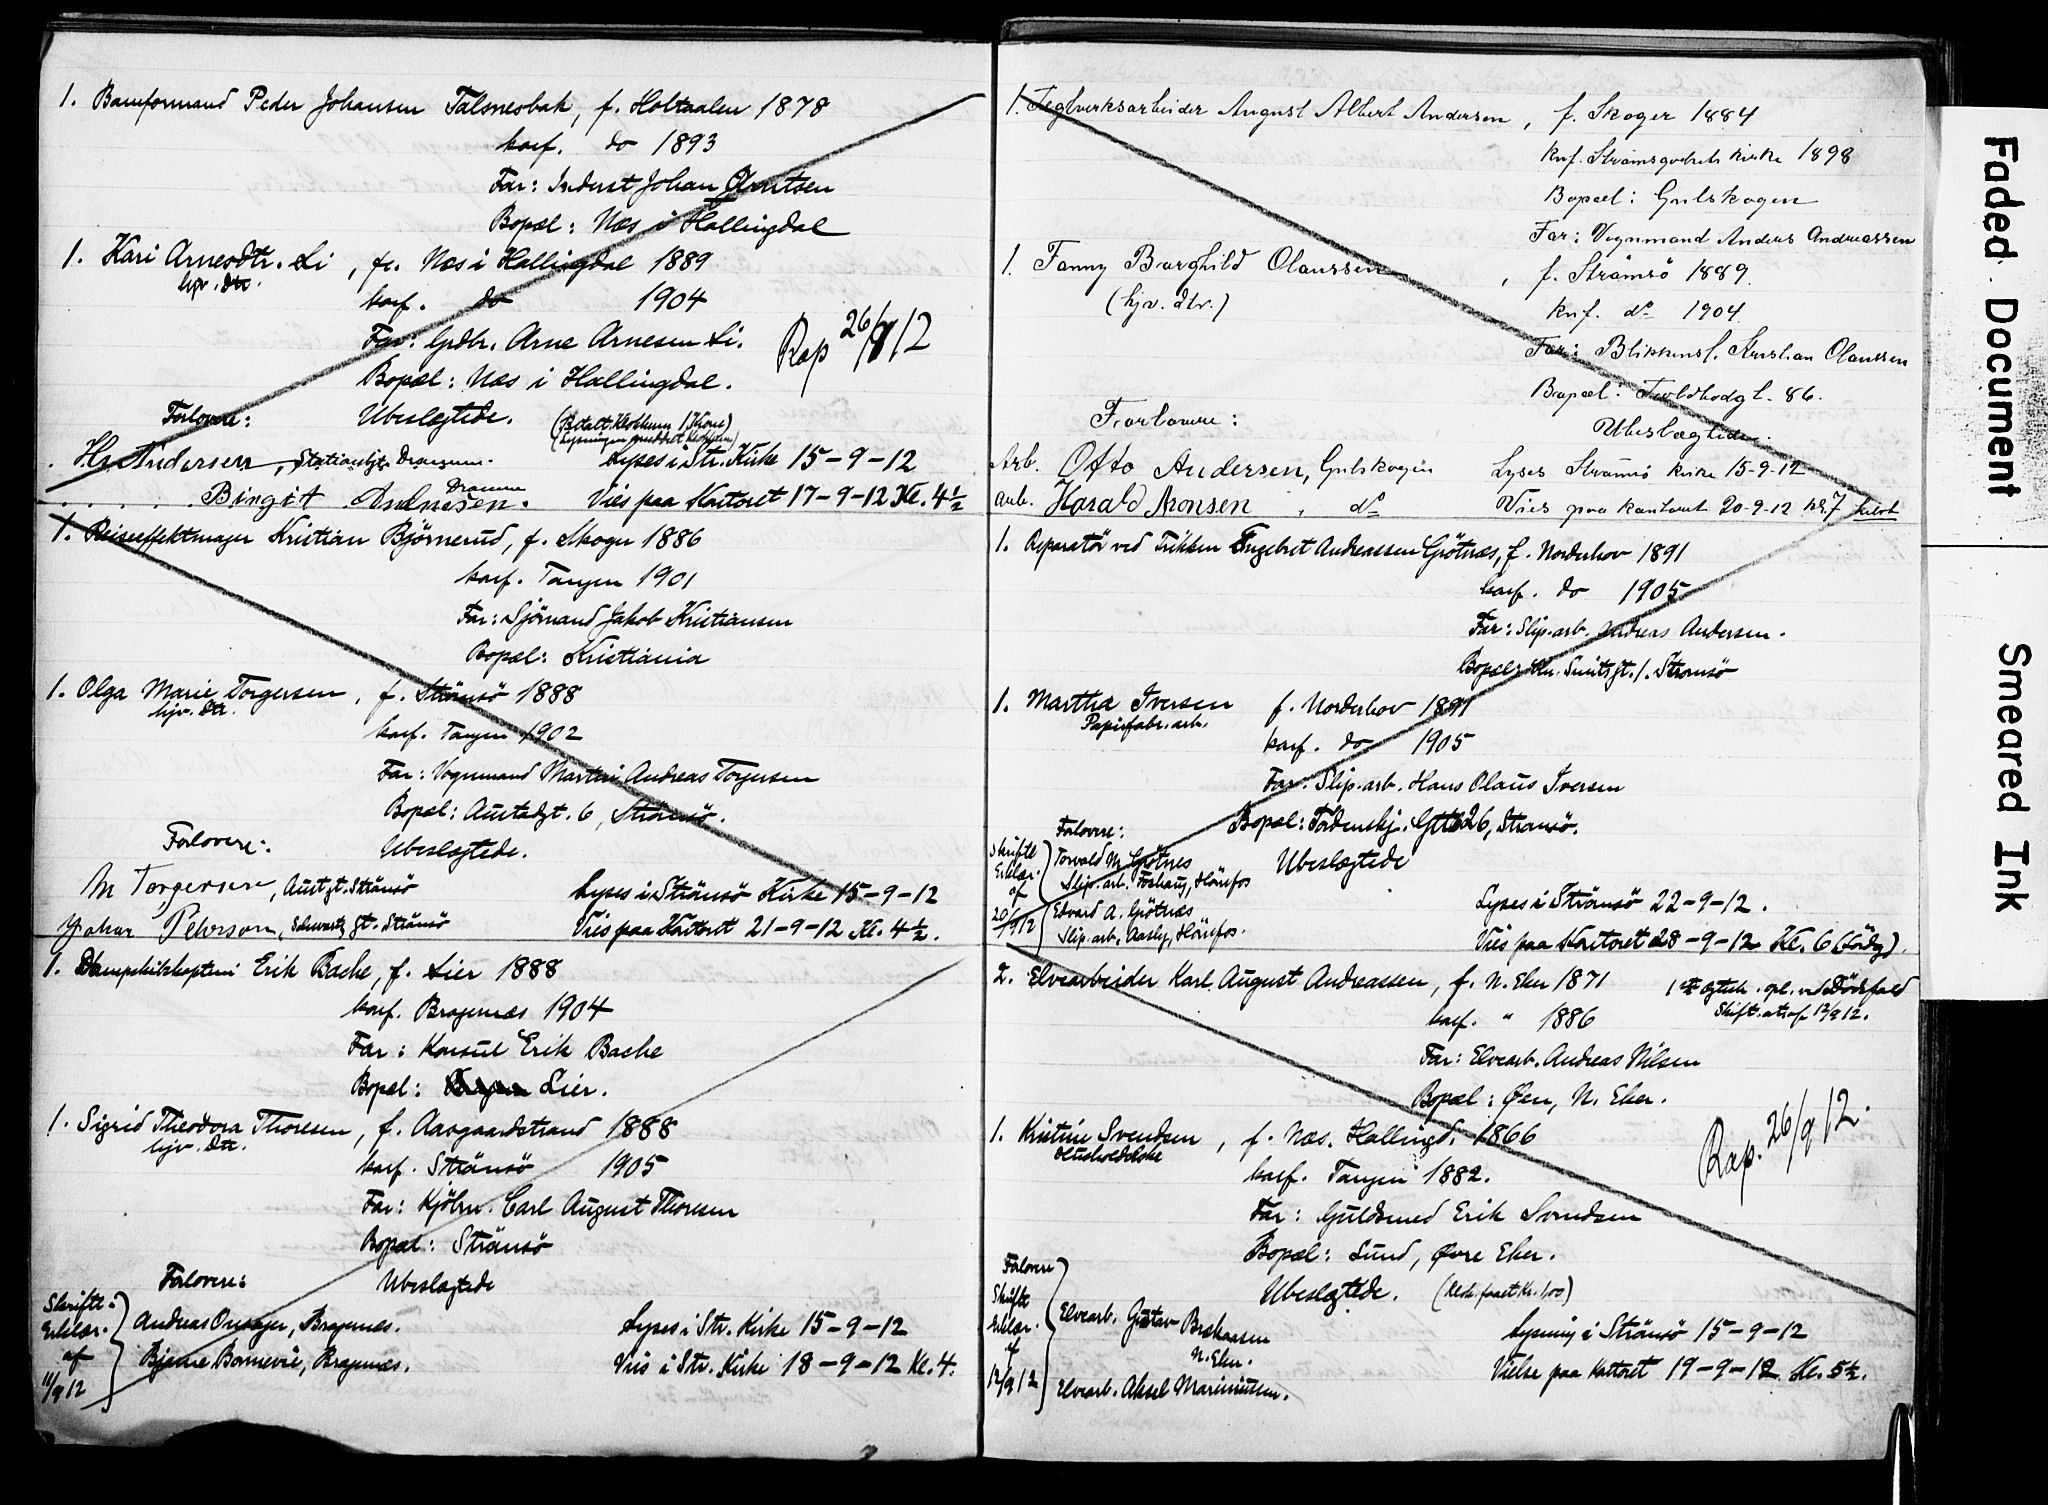 1. Baneformand Peder Johansen Talsnesbak, f. Holtaalen 1878
konf. do 1893
Far: Inderst Johan Arntsen
Bopæl: Næs i Hallingdal
1. Kari Arnesdtr. Li, f. Næs i Hallingdal 1889
hjv. Dtr.
konf. do 1904
Far: Grdbr. Arne Arnesen Li.
Bopæl: Næs i Hallingdal.
Rap 26/9 12
Forlovere: Ubeslægtede.
(Betalt Klokkeren 1 Krone)
H. Andersen, Stationsbjt. Drammen. Lyses i Str. Kirke 15-9-12
Birgit Andresen. Dramm Vies paa Kontoret 17-9-12 Kl. 4½
1. Reiseeffektmager Kristian Björnerud, f. Skoger 1886
konf. Tangen 1901
Far: Sjömand Jakob Kristiansen
Bopæl: Kristiania
1. Olga Marie Torgersen, f. Strömsö 1888
hjv. Dtr.
konf. Tangen 1902
Far: Vognmand Martin Andreas Torgersen
Bopæl: Austadgt. 6, Strömsö.
Forlovere: Ubeslægtede.
M Torgersen, Austgt. Strömsö Lyses i Strömsö Kirke 15-9-12
Johan Pehrson, Schwartz Gt. Strömsö Vies paa Kontoret 21-9-12 Kl. 4½.
1. Dampskibskaptein Erik Bache, f. Lier 1888
konf. Bragernæs 1904
Far: Konsul Erik Bache
Bopæl: Lier.
1. Sigrid Theodora Thoresen, f. Aasgaardstrand 1888
hjv. Dtr.
konf. Strömsö 1905
Far: Kjöbm. Carl August Thoresen
Bopæl: Strömsö
Forlovere: Ubeslægtede
Skriftl. Erklær. af 11/9 12
Andreas Onsager, Bragernæs. Lyses i Str. Kirke 15-9-12
Bjarne Bornevie, Bragernæs. Vies i Str. Kirke 18-9-12 Kl. 4.
1. Teglverksarbeider August Albert Andersen, f. Skoger 1884
knf. Strømsgodsets kirke 1898
Bopæl: Gulskogen
Far: Vognmand Anders Andreassen
1. Fanny Borghild Olaussen, f. Strömsö 1889.
(hjv. dtr.)
knf. do 1904.
Far: Blikkensl. Kristian Olaussen
Bopæl: Tordenskjoldsgt. 86.
Forlovere: Ubeslægtede.
Arb. Otto Andersen, Gulskogen Lyses Strømsö kirke 15-9-12
arb. Harald Aronsen, do Vies paa kontoret 20-9-12 kl. 7
1. Reparatör ved Trikken Engebret Andreassen Götnæs, f. Norderhov 1891
konf. do 1905
Far: Slip.arb. Andreas Andersen.
Bopæl: Kn. Smitsgt. 1. Strømsö
1. Martha Iversen f. Norderhov 1891
Papirfabr. arb.
konf. do 1905
Far: Slip.arb. Hans Olaus Iversen
Bopæl: Tordenskj. Gtt 26, Strømsö.
Forlovere: Ubeslægtede
Skriftl Erklær. af 20/9 12
Torvald M. Götnes
Slip.arb. Foshaug, Hönefos
Edvard A. Götnæs
Slip.arb. Aasly, Hönefos.
Lyses i Strömsö 22-9-12.
Vies paa Kontoret 28-9-12 Kl. 6 (Lördg).
2. Elvearbeider Karl August Andreassen, f. N. Eker 1871
1ste Ægtesk. opl. ved Dödsfald
Skift.attest af 12/9 12.
konf. " 1886
Far: Elvearb. Andreas Nilsen
Bopæl: Øen, N. Eker.
1. Kristine Svendsen, f. Næs. Hallingd. 1866
Husholderske
konf. Tangen 1882.
Far: Guldsmed Erik Svendsen
Bopæl: Lund, Øvre Eker.
Rap. 26/9 12.
Ubeslægtede. (Klok. faaet Kr. 1,00)
Forlovere Skriftl Erklær. af 12/9 12
Elvearb. Gustav Brekaasen
N. Eker.
Elvearb. Aksel Mariniussen.
Lysning i Strömsö 15-9-12
Vielse paa Kontoret 19-9-12 Kl. 5½.
Faded Document
Smeared Ink